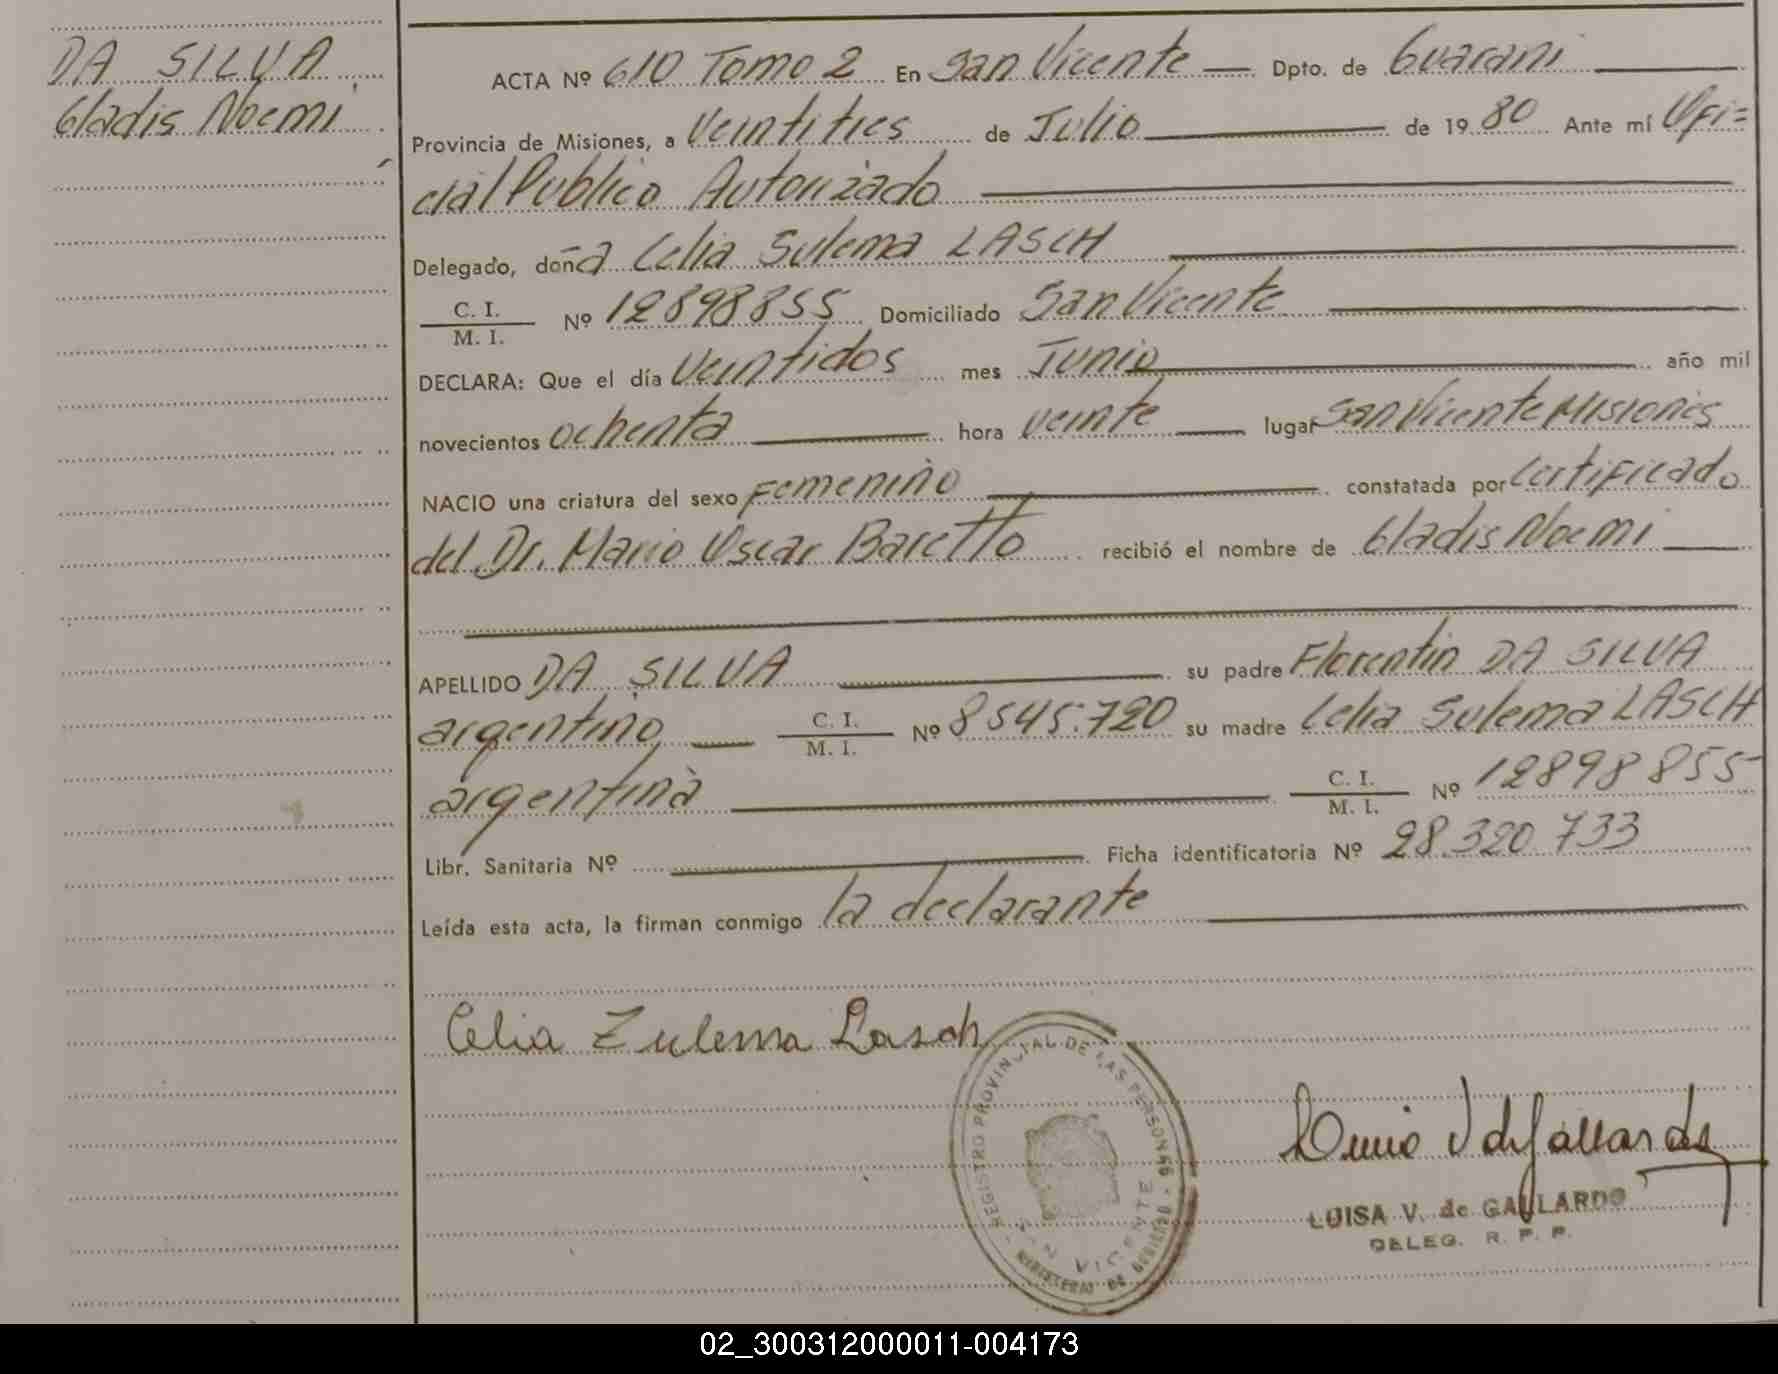 DA SILVA
Gladis Noemi
ACTA Nº 610 Tomo 2 En San Vicente Dpto. de Guarani
Provincia de Misiones, a Veintitres de Julio de 1980 Ante mí Ofi=
cial Publico Autorizado
Delegado, doña Celia Sulema LASCH
C. I.
M. I. Nº 12898855 Domiciliado San Vicente
DECLARA: Que el día Veintidos mes Junio año mil
novecientos ochenta hora veinte lugar San Vicente Misiones
NACIO una criatura del sexo femenino constatada por Certificado
del Dr. Mario Oscar Baretto recibió el nombre de Gladis Noemi
APELLIDO DA SILVA su padre Florentin DA SILVA
argentino C. I.
M. I. Nº 8545.720 su madre Celia Sulema LASCH
argentina C. I.
M. I. Nº 12898855
Libr. Sanitaria Nº Ficha identificatoria Nº 28.320 733
Leída esta acta, la firman conmigo la declarante
Celia Zulema Lasch
REGISTRO PROVINCIAL DE LAS PERSONAS - MINISTERIO DE GOBIERNO -
SAN VICENTE
LUISA V. de GALLARDO
DELEG. R. P. P.
02_300312000011-004173